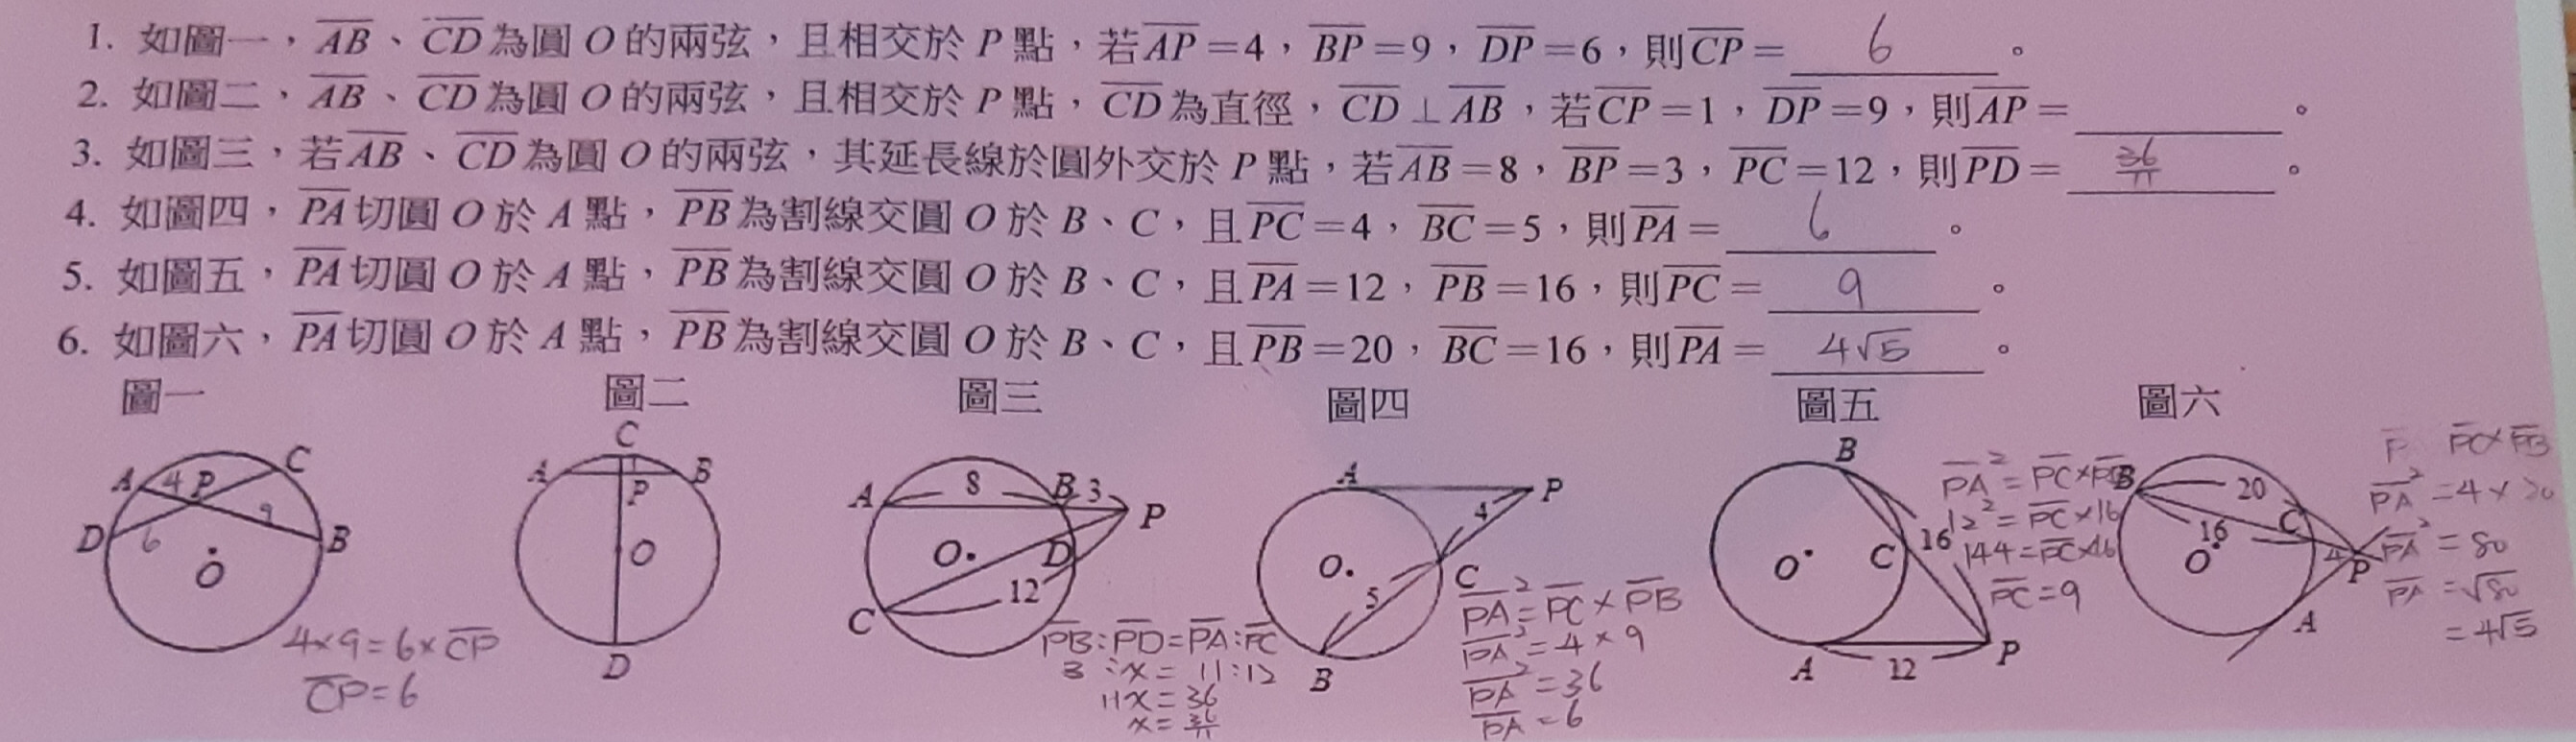 1. 如圖一，AB、CD為圓 O 的兩弦，且相交於 P 點，若AP=4，BP=9，DP=6，則CP= 6 。
2. 如圖二，AB、CD為圓 O 的兩弦，且相交於 P 點，CD為直徑，CD⊥AB，若CP=1，DP=9，則AP= 。
3. 如圖三，若AB、CD為圓 O 的兩弦，其延長線於圓外交於 P 點，若AB=8，BP=3，PC=12，則PD= 36/11 。
4. 如圖四，PA切圓 O 於 A 點，PB為割線交圓 O 於 B、C，且PC=4，BC=5，則PA= 6 。
5. 如圖五，PA切圓 O 於 A 點，PB為割線交圓 O 於 B、C，且PA=12，PB=16，則PC= 9 。
6. 如圖六，PA切圓 O 於 A 點，PB為割線交圓 O 於 B、C，且PB=20，BC=16，則PA= 4√5 。
圖一
A 4 P C
D 6 9 B
O
4×9=6×CP
CP=6
圖二
C
A 1 B
P
O
D
圖三
A 8 B 3 P
O D
C 12
PB:PD=PA:PC
3:x=11:12
11x=36
x=36/11
圖四
A P
4
O C
5
B
PA²=PC×PB
PA²=4×9
PA²=36
PA=6
圖五
B
O C 16
A 12 P
PA²=PC×PB
12²=PC×16
144=PC×16
PC=9
圖六
B 20
16 C
O 4 P
A
P PC×PB
PA²=4×20
PA²=80
PA=√80
=4√5